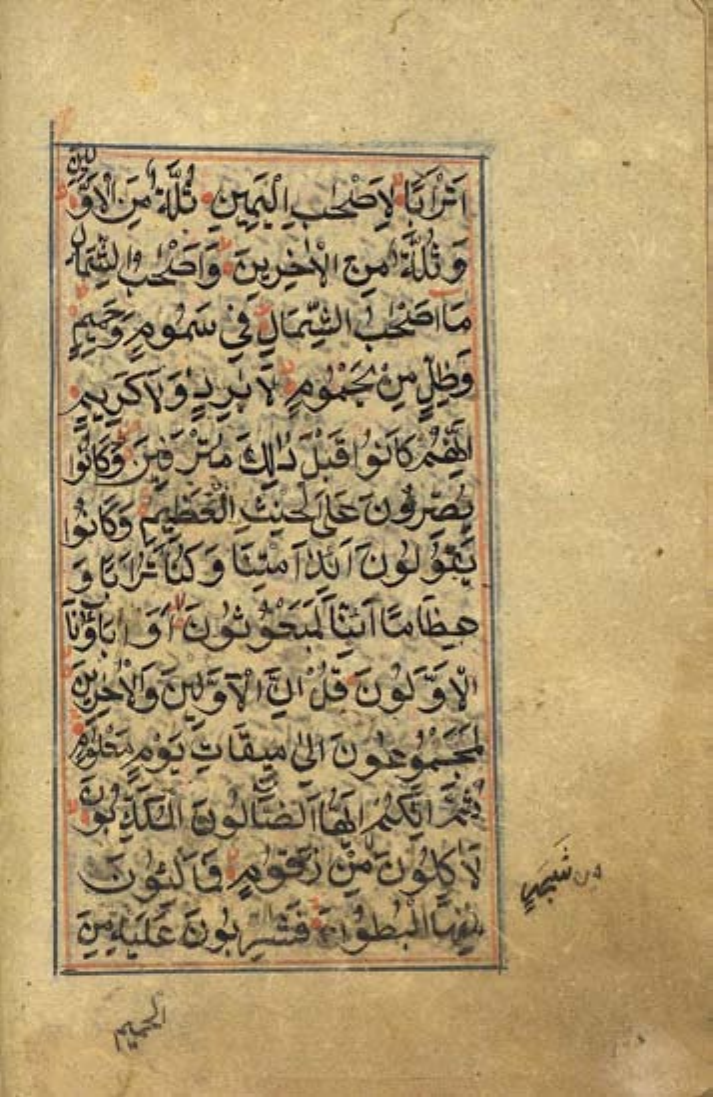 اَتْرَابًا لِاَصْحٰبِ الْيَمِينِ ثُلَّةٌ مِنَ الْاَوَّلِينَ
وَثُلَّةٌ مِنَ الْاٰخِرِينَ وَاَصْحٰبُ الشِّمَالِ
مَا اَصْحٰبُ الشِّمَالِ فِي سَمُومٍ وَحَمِيمٍ
وَظِلٍّ مِنْ يَحْمُومٍ لَا بَرِيدٍ وَلَا كَرِيمٍ
اِنَّهُمْ كَانُوا قَبْلَ ذٰلِكَ مُتْرَفِينَ وَكَانُوا
يُصِرُّونَ عَلَى الْحِنْثِ الْعَظِيمِ وَكَانُوا
يَقُولُونَ اَئِذَا مِتْنَا وَكُنَّا تُرَابًا وَ
عِظَامًا اَئِنَّا لَمَبْعُوثُونَ اَوَ اٰبَاؤُنَا
الْاَوَّلُونَ قُلْ اِنَّ الْاَوَّلِينَ وَالْاٰخِرِينَ
لَمَجْمُوعُونَ اِلٰى مِيقَاتِ يَوْمٍ مَعْلُومٍ
ثُمَّ اِنَّكُمْ اَيُّهَا الضَّالُّونَ الْمُكَذِّبُونَ
لَاٰكِلُونَ مِنْ زَقُّومٍ فَمَالِئُونَ
من شجر
مِنْهَا الْبُطُونَ فَشَارِبُونَ عَلَيْهِ مِنَ
الحميم